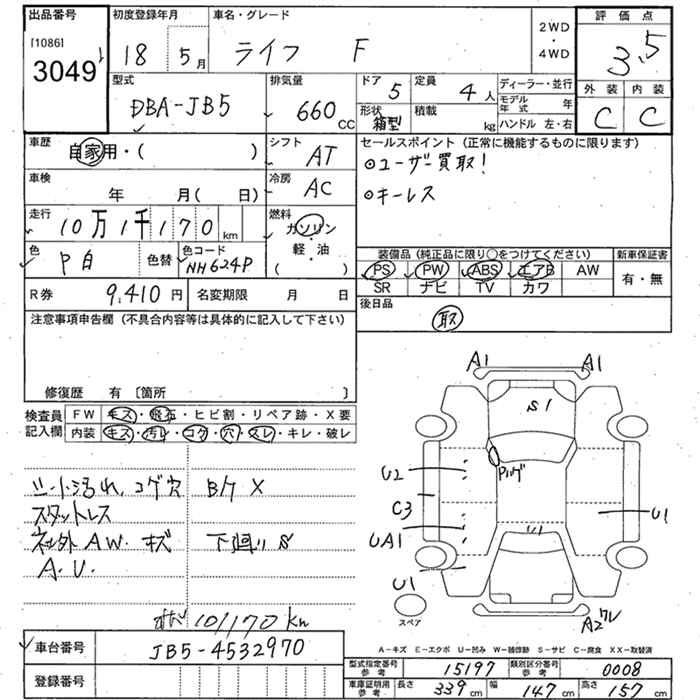 出品番号 初度登録年月 車名・グレード 2WD・4WD 評価点
[1086] 3049 18 5月 ライフ F 3.5
型式 排気量 ドア 5 定員 4人 ディーラー・並行 外装 内装
DBA-JB5 660cc 形状 箱型 積載 kg モデル年式 年 C C
ハンドル 左・右
車歴 自家用・( ) シフト AT セールスポイント (正常に機能するものに限ります)
車検 年 月(日) 冷房 AC ○ユーザー買取!
○キーレス
走行 10万1千170km 燃料 ガソリン・軽・油 ( )
色 P白 色替 色コード NH624P 装備品 (純正品に限り○をつけてください) 新車保証書
PS PW ABS エアB AW 有・無
SR ナビ TV カワ
R券 9,410円 名変期限 月 日 後日品
取
注意事項申告欄 (不具合内容等は具体的に記入して下さい)
修復歴 有 〔箇所 〕
検査員記入欄 FW キズ・飛石・ヒビ割・リペア跡・X要
内装 キズ・汚レ・コゲ・穴・スレ・キレ・破レ
シート汚れ、コゲ穴 Bケ X
スタットレス
社外AW.キズ 下廻りS
A.U.
101170km
A1 A1
S1
U2
C3 U1
UA1
U1
A2
スペア
A-キズ E-エクボ U-凹み W-補修跡 S-サビ C-腐食 XX-取替済
車台番号 JB5-4532970
登録番号
型式指定番号 参考 15197 類別区分番号 参考 0008
車庫証明用 参考 長さ 339cm 幅 147cm 高さ 157cm